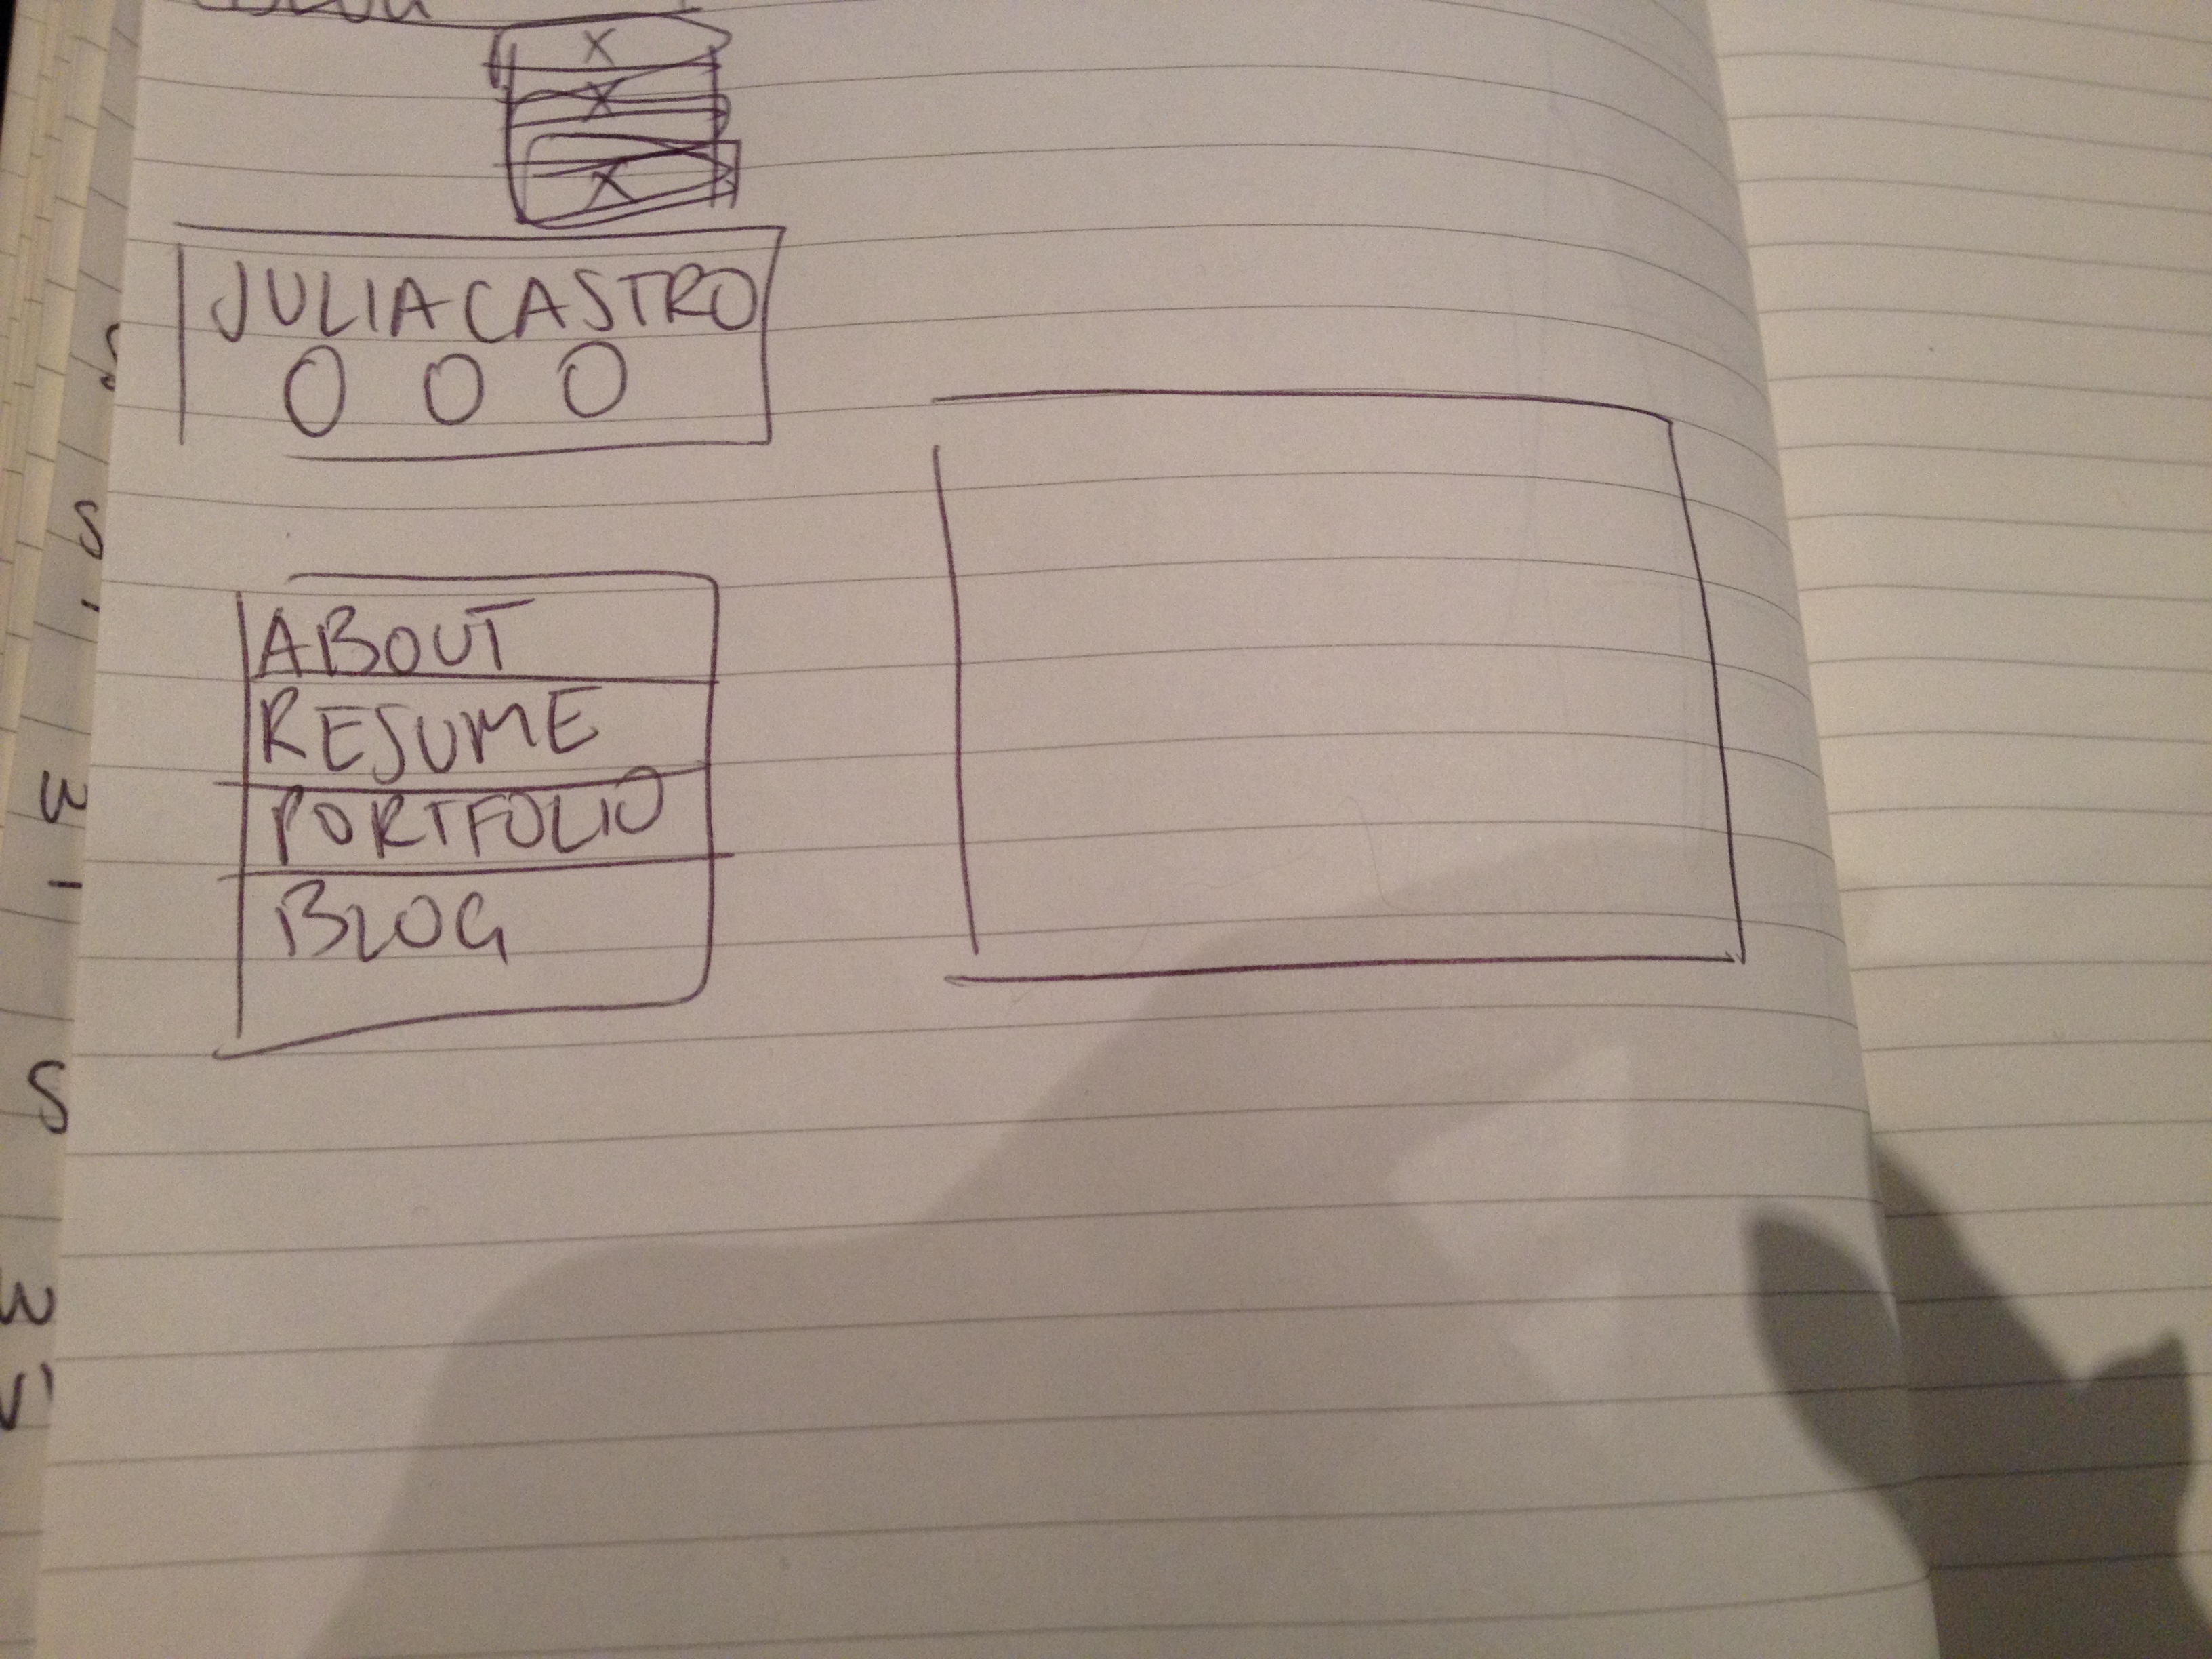 JULIA CASTRO
ABOUT
RESUME
PORTFOLIO
BLOG